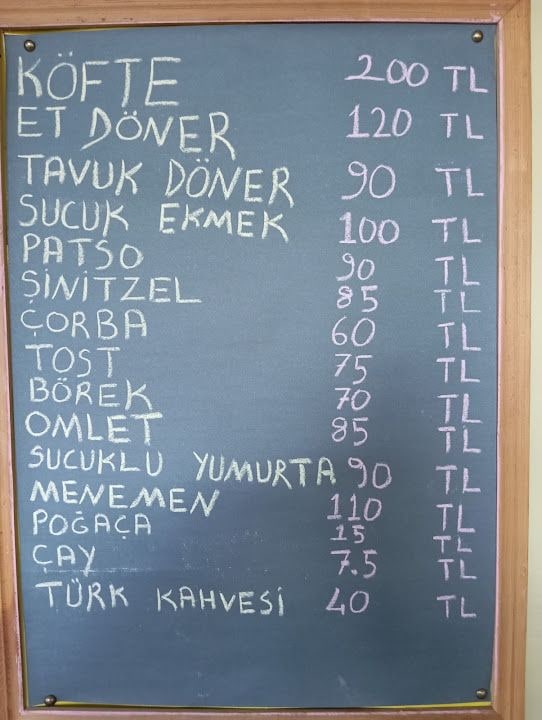 KÖFTE 200 TL
ET DÖNER 120 TL
TAVUK DÖNER 90 TL
SUCUK EKMEK 100 TL
PATSO 90 TL
ŞİNİTZEL 85 TL
ÇORBA 60 TL
TOST 75 TL
BÖREK 70 TL
OMLET 85 TL
SUCUKLU YUMURTA 90 TL
MENEMEN 110 TL
POĞAÇA 15 TL
ÇAY 7.5 TL
TÜRK KAHVESİ 40 TL